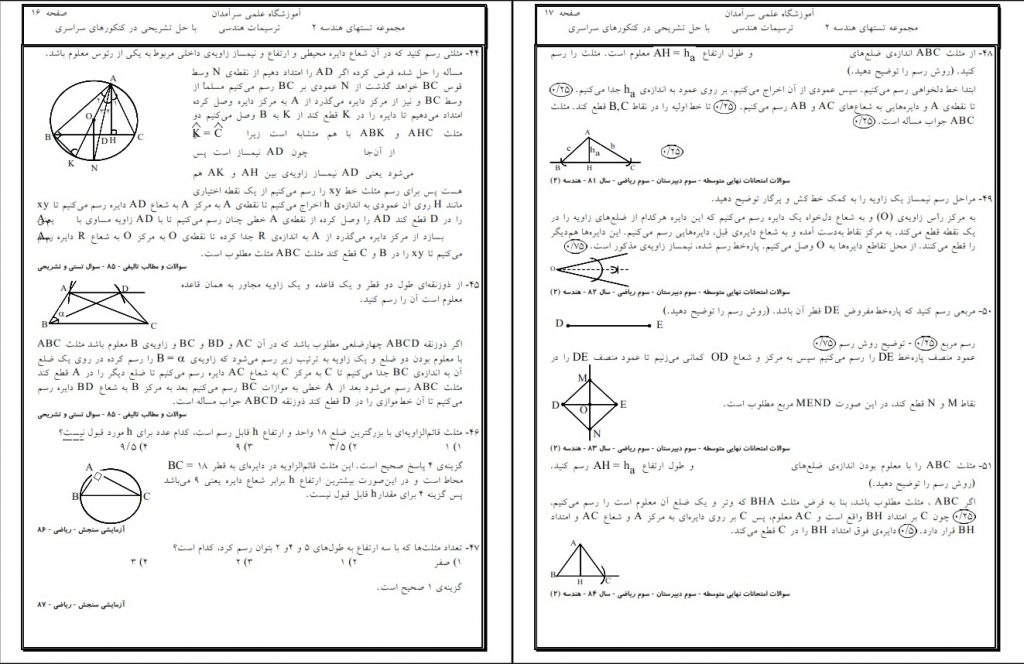 آموزشگاه علمی سرآمدان
صفحه ۱۷
مجموعه تستهای هندسه ۲ ترسیمات هندسی با حل تشریحی در کنکورهای سراسری
۴۸- از مثلث ABC اندازه‌ی ضلع‌های و طول ارتفاع AH = ha معلوم است. مثلث را رسم
کنید. (روش رسم را توضیح دهید.)
ابتدا خط دلخواهی رسم می‌کنیم. سپس عمودی از آن اخراج می‌کنیم. بر روی عمود به اندازه‌ی ha جدا می‌کنیم. (۰/۲۵)
تا نقطه‌ی A و دایره‌هایی به شعاع‌های AC و AB رسم می‌کنیم. (۰/۲۵) تا خط اولیه را در نقاط B,C قطع کند. مثلث
ABC جواب مسأله است. (۰/۲۵)
A
c ha b
(۰/۲۵)
B H C
سوالات امتحانات نهایی متوسطه - سوم دبیرستان - سوم ریاضی - سال ۸۱ - هندسه (۲)
۴۹- مراحل رسم نیمساز یک زاویه را به کمک خط کش و پرگار توضیح دهید.
به مرکز رأس زاویه‌ی (O) و به شعاع دلخواه یک دایره رسم می‌کنیم که این دایره هرکدام از ضلع‌های زاویه را در
یک نقطه قطع می‌کند. به مرکز نقاط به‌دست آمده و به شعاع دایره‌ی قبل، دایره‌هایی رسم می‌کنیم. این دایره‌ها هم‌دیگر
را قطع می‌کنند. از محل تقاطع دایره‌ها به O وصل می‌کنیم. پاره‌خط رسم شده، نیمساز زاویه‌ی مذکور است. (۰/۷۵)
O
سوالات امتحانات نهایی متوسطه - سوم دبیرستان - سوم ریاضی - سال ۸۳ - هندسه (۲)
۵۰- مربعی رسم کنید که پاره‌خط مفروض DE قطر آن باشد. (روش رسم را توضیح دهید.)
D E
رسم مربع (۰/۲۵) - توضیح روش رسم (۰/۷۵)
عمود منصف پاره‌خط DE را رسم می‌کنیم سپس به مرکز و شعاع OD کمانی می‌زنیم تا عمود منصف DE را در
M
D O E
N
نقاط M و N قطع کند، در این صورت MEND مربع مطلوب است.
سوالات امتحانات نهایی متوسطه - سوم دبیرستان - سوم ریاضی - سال ۸۳ - هندسه (۲)
۵۱- مثلث ABC را با معلوم بودن اندازه‌ی ضلع‌های و طول ارتفاع AH = ha رسم کنید.
(روش رسم را توضیح دهید.)
اگر ABC ، مثلث مطلوب باشد، بنا به فرض مثلث BHA که وتر و یک ضلع آن معلوم است را رسم می‌کنیم.
(۰/۲۵) چون C بر امتداد BH واقع است و AC معلوم، پس C بر روی دایره‌ای به مرکز A و شعاع AC و امتداد
BH قرار دارد. (۰/۵) دایره‌ی فوق امتداد BH را در C قطع می‌کند.
A
B H C
سوالات امتحانات نهایی متوسطه - سوم دبیرستان - سوم ریاضی - سال ۸۴ - هندسه (۲)
آموزشگاه علمی سرآمدان
صفحه ۱۶
مجموعه تستهای هندسه ۲ ترسیمات هندسی با حل تشریحی در کنکورهای سراسری
۴۴- مثلثی رسم کنید که در آن شعاع دایره محیطی و ارتفاع و نیمساز زاویه‌ی داخلی مربوط به یکی از رئوس معلوم باشد.
مسأله را حل شده فرض کرده اگر AD را امتداد دهیم از نقطه‌ی N وسط
قوس BC خواهد گذشت از N عمودی بر BC رسم می‌کنیم مسلماً از
وسط BC و نیز از مرکز دایره می‌گذرد از A به مرکز دایره وصل کرده
امتداد می‌دهیم تا دایره را در K قطع کند از K به B وصل می‌کنیم دو
مثلث AHC و ABK با هم متشابه است زیرا K̂ = Ĉ
از آن‌جا چون AD نیمساز است پس
می‌شود یعنی AD نیمساز زاویه‌ی بین AH و AK هم
A
O
B D H C
K
N
هست پس برای رسم مثلث خط xy را رسم می‌کنیم از یک نقطه اختیاری
مانند H روی آن عمودی به اندازه‌ی h اخراج می‌کنیم تا نقطه‌ی A به مرکز A به شعاع AD دایره رسم می‌کنیم تا xy
را در D قطع کند AD را وصل کرده از نقطه‌ی A خطی چنان رسم می‌کنیم تا با AD زاویه مساوی با یعنی
بسازد از مرکز دایره می‌گذرد از A به اندازه‌ی R جدا کرده تا نقطه‌ی O به مرکز O به شعاع R دایره رسم
می‌کنیم تا xy را در B و C قطع کند مثلث ABC مثلث مطلوب است.
سوالات و مطالب تالیفی - ۸۵ - سوال تستی و تشریحی
۴۵- از ذوزنقه‌ای طول دو قطر و یک قاعده و یک زاویه مجاور به همان قاعده
معلوم است آن را رسم کنید.
A D
B α C
اگر ذوزنقه ABCD چهارضلعی مطلوب باشد که در آن AC و BD و BC و زاویه‌ی B معلوم باشد مثلث ABC
با معلوم بودن دو ضلع و یک زاویه به ترتیب زیر رسم می‌شود که زاویه‌ی B = α را رسم کرده در روی یک ضلع
آن به اندازه‌ی BC جدا می‌کنیم تا C به مرکز C به شعاع AC دایره رسم می‌کنیم تا ضلع دیگر را در A قطع کند
مثلث ABC رسم می‌شود بعد از A خطی به موازات BC رسم می‌کنیم بعد به مرکز B به شعاع BD دایره رسم
می‌کنیم تا آن خط موازی را در D قطع کند ذوزنقه ABCD جواب مسأله است.
سوالات و مطالب تالیفی - ۸۵ - سوال تستی و تشریحی
۴۶- مثلث قائم‌الزاویه‌ای با بزرگترین ضلع ۱۸ واحد و ارتفاع h قابل رسم است، کدام عدد برای h مورد قبول نیست؟
۱) ۱ ۲) ۳/۵ ۳) ۹ ۴) ۹/۵
گزینه‌ی ۴ پاسخ صحیح است. این مثلث قائم‌الزاویه در دایره‌ای به قطر BC = ۱۸
محاط است و در این‌صورت بیشترین ارتفاع h برابر شعاع دایره یعنی ۹ می‌باشد
پس گزینه ۴ برای مقدار h قابل قبول نیست.
A
B C
آزمایشی سنجش - ریاضی - ۸۶
۴۷- تعداد مثلث‌ها که با سه ارتفاع به طول‌های ۵ و ۴ و ۲ بتوان رسم کرد، کدام است؟
۱) صفر ۲) ۱ ۳) ۲ ۴) ۳
گزینه‌ی ۱ صحیح است.
آزمایشی سنجش - ریاضی - ۸۷